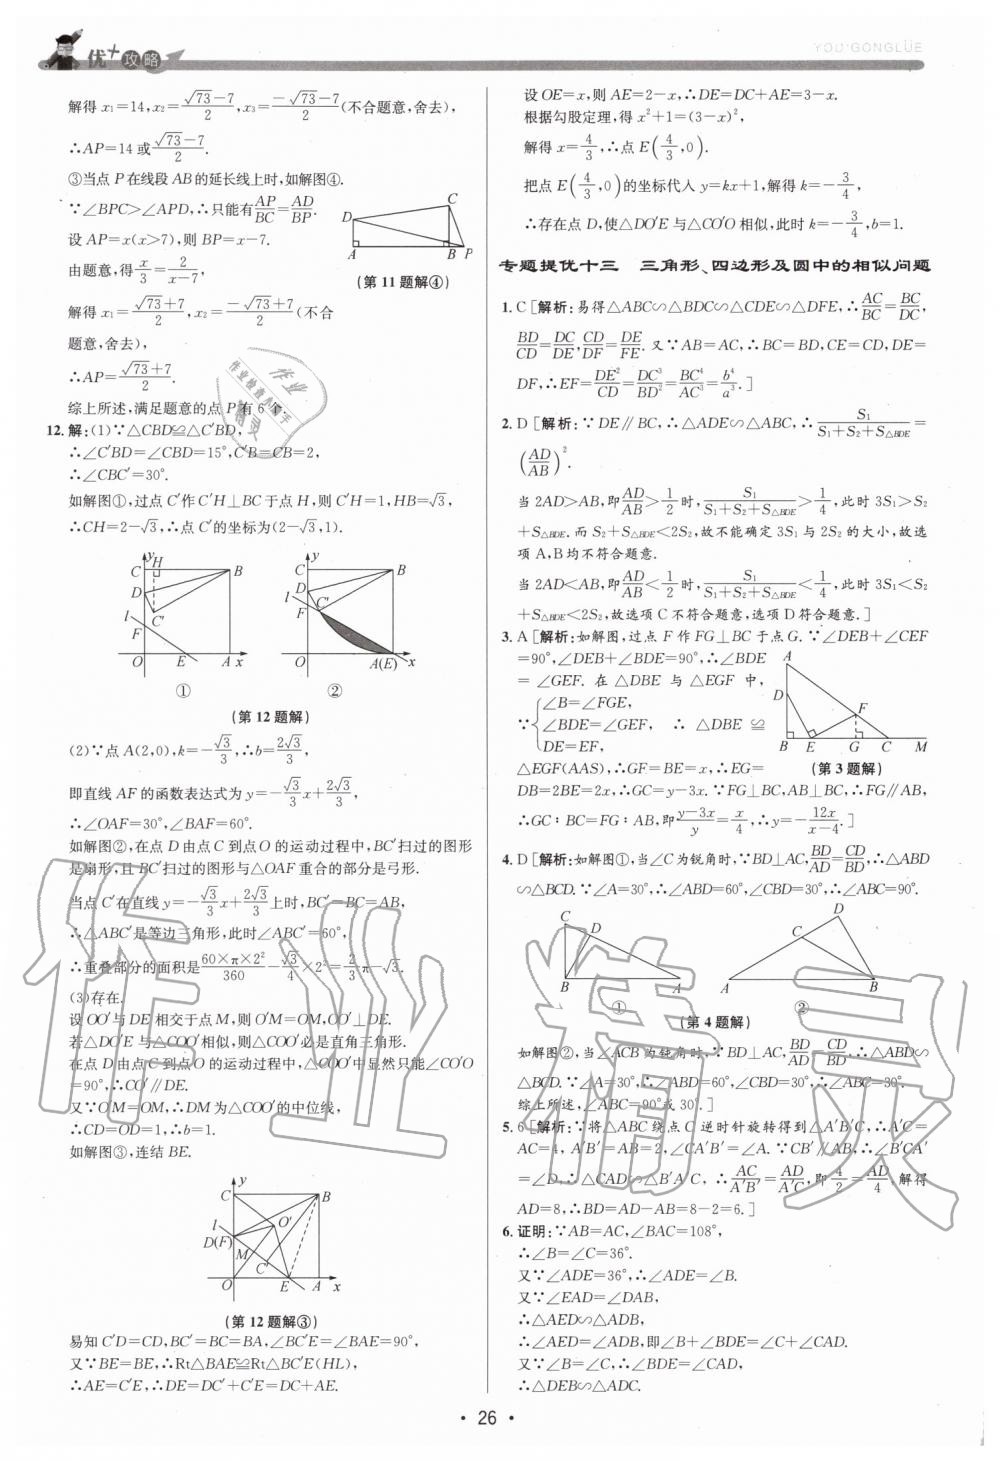 优+攻略
YOU+GONGLÜE
解得 x₁=14,x₂=(√73−7)/2,x₃=(−√73−7)/2(不合题意,舍去),
∴AP=14 或(√73−7)/2.
③当点 P 在线段 AB 的延长线上时,如解图④.
∵∠BPC>∠APD,∴只能有AP/BC=AD/BP.
设 AP=x(x>7),则 BP=x−7.
由题意,得x/3=2/(x−7),
解得 x₁=(√73+7)/2,x₂=(−√73+7)/2(不合
题意,舍去),
∴AP=(√73+7)/2.
综上所述,满足题意的点 P 有 6 个.
D C A B P
(第 11 题解④)
12. 解:(1)∵△CBD≌△C′BD,
∴∠C′BD=∠CBD=15°,C′B=CB=2,
∴∠CBC′=30°.
如解图①,过点 C′作 C′H⊥BC 于点 H,则 C′H=1,HB=√3,
∴CH=2−√3,∴点 C′的坐标为(2−√3,1).
y H C B D l C′ F O E A x
①
y C B D l C′ F O A(E) x
②
(第 12 题解)
(2)∵点 A(2,0),k=−√3/3,∴b=2√3/3,
即直线 AF 的函数表达式为 y=−√3/3x+2√3/3,
∴∠OAF=30°,∠BAF=60°.
如解图②,在点 D 由点 C 到点 O 的运动过程中,BC′扫过的图形
是扇形,且 BC′扫过的图形与△OAF 重合的部分是弓形.
当点 C′在直线 y=−√3/3x+2√3/3上时,BC′=BC=AB,
∴△ABC′是等边三角形,此时∠ABC′=60°,
∴重叠部分的面积是(60×π×2²)/360−√3/4×2²=2/3π−√3.
(3)存在.
设 OO′与 DE 相交于点 M,则 O′M=OM,OO′⊥DE.
若△DO′E 与△COO′相似,则△COO′必是直角三角形.
在点 D 由点 C 到点 O 的运动过程中,△COO′中显然只能∠CO′O
=90°,∴CO′∥DE.
又∵O′M=OM,∴DM 为△COO′的中位线,
∴CD=OD=1,∴b=1.
如解图③,连结 BE.
y C B l O′ D(F) M C′ O E A x
(第 12 题解③)
易知 C′D=CD,BC′=BC=BA,∠BC′E=∠BAE=90°,
又∵BE=BE,∴Rt△BAE≌Rt△BC′E(HL),
∴AE=C′E,∴DE=DC′+C′E=DC+AE.
设 OE=x,则 AE=2−x,∴DE=DC+AE=3−x.
根据勾股定理,得 x²+1=(3−x)²,
解得 x=4/3,∴点 E(4/3,0).
把点 E(4/3,0)的坐标代入 y=kx+1,解得 k=−3/4,
∴存在点 D,使△DO′E 与△CO′O 相似,此时 k=−3/4,b=1.
专题提优十三 三角形、四边形及圆中的相似问题
1. C [解析:易得△ABC∽△BDC∽△CDE∽△DFE,∴AC/BC=BC/DC,
BD/CD=DC/DE,CD/DF=DE/FE.又∵AB=AC,∴BC=BD,CE=CD,DE=
DF,∴EF=DE²/CD=DC³/BD²=BC⁴/AC³=b⁴/a³.]
2. D [解析:∵DE∥BC,∴△ADE∽△ABC,∴S₁/(S₁+S₂+S△BDE)=
(AD/AB)².
当 2AD>AB,即AD/AB>1/2时,S₁/(S₁+S₂+S△BDE)>1/4,此时 3S₁>S₂
+S△BDE.而 S₂+S△BDE<2S₂,故不能确定 3S₁与 2S₂的大小,故选
项 A,B 均不符合题意.
当 2AD<AB,即AD/AB<1/2时,S₁/(S₁+S₂+S△BDE)<1/4,此时 3S₁<S₂
+S△BDE<2S₂,故选项 C 不符合题意,选项 D 符合题意.]
3. A [解析:如解图,过点 F 作 FG⊥BC 于点 G.∵∠DEB+∠CEF
=90°,∠DEB+∠BDE=90°,∴∠BDE
=∠GEF.在△DBE 与△EGF 中,
∵{∠B=∠FGE,
∠BDE=∠GEF, ∴△DBE≌
DE=EF,
△EGF(AAS),∴GF=BE=x,∴EG=
A D F B E G C M
(第 3 题解)
DB=2BE=2x,∴GC=y−3x.∵FG⊥BC,AB⊥BC,∴FG∥AB,
∴GC∶BC=FG∶AB,即(y−3x)/y=x/4,∴y=−12x/(x−4).]
4. D [解析:如解图①,当∠C 为锐角时,∵BD⊥AC,BD/AD=CD/BD,∴△ABD
∽△BCD.∵∠A=30°,∴∠ABD=60°,∠CBD=30°,∴∠ABC=90°.
C D B A
①
D C A B
②
(第 4 题解)
如解图②,当∠ACB 为钝角时,∵BD⊥AC,BD/AD=CD/BD,∴△ABD∽
△BCD.∵∠A=30°,∴∠ABD=60°,∠CBD=30°,∴∠ABC=30°.
综上所述,∠ABC=90°或 30°.]
5. 6 [解析:∵将△ABC 绕点 C 逆时针旋转得到△A′B′C,∴A′C=
AC=4,A′B′=AB=2,∠CA′B′=∠A.∵CB′∥AB,∴∠B′CA′
=∠D,∴△CAD∽△B′A′C,∴AC/A′B′=AD/A′C,即4/2=AD/4,解得
AD=8,∴BD=AD−AB=8−2=6.]
6. 证明:∵AB=AC,∠BAC=108°,
∴∠B=∠C=36°.
又∵∠ADE=36°,∴∠ADE=∠B.
又∵∠EAD=∠DAB,
∴△AED∽△ADB,
∴∠AED=∠ADB,即∠B+∠BDE=∠C+∠CAD.
又∵∠B=∠C,∴∠BDE=∠CAD,
∴△DEB∽△ADC.
• 26 •
作业精灵
作业
作业检查小助手
精灵